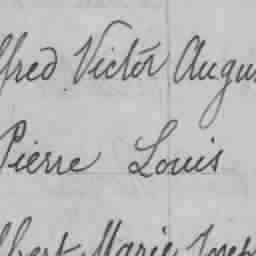 lfred Victor Augus
Pierre Louis
lbert Marie Josep